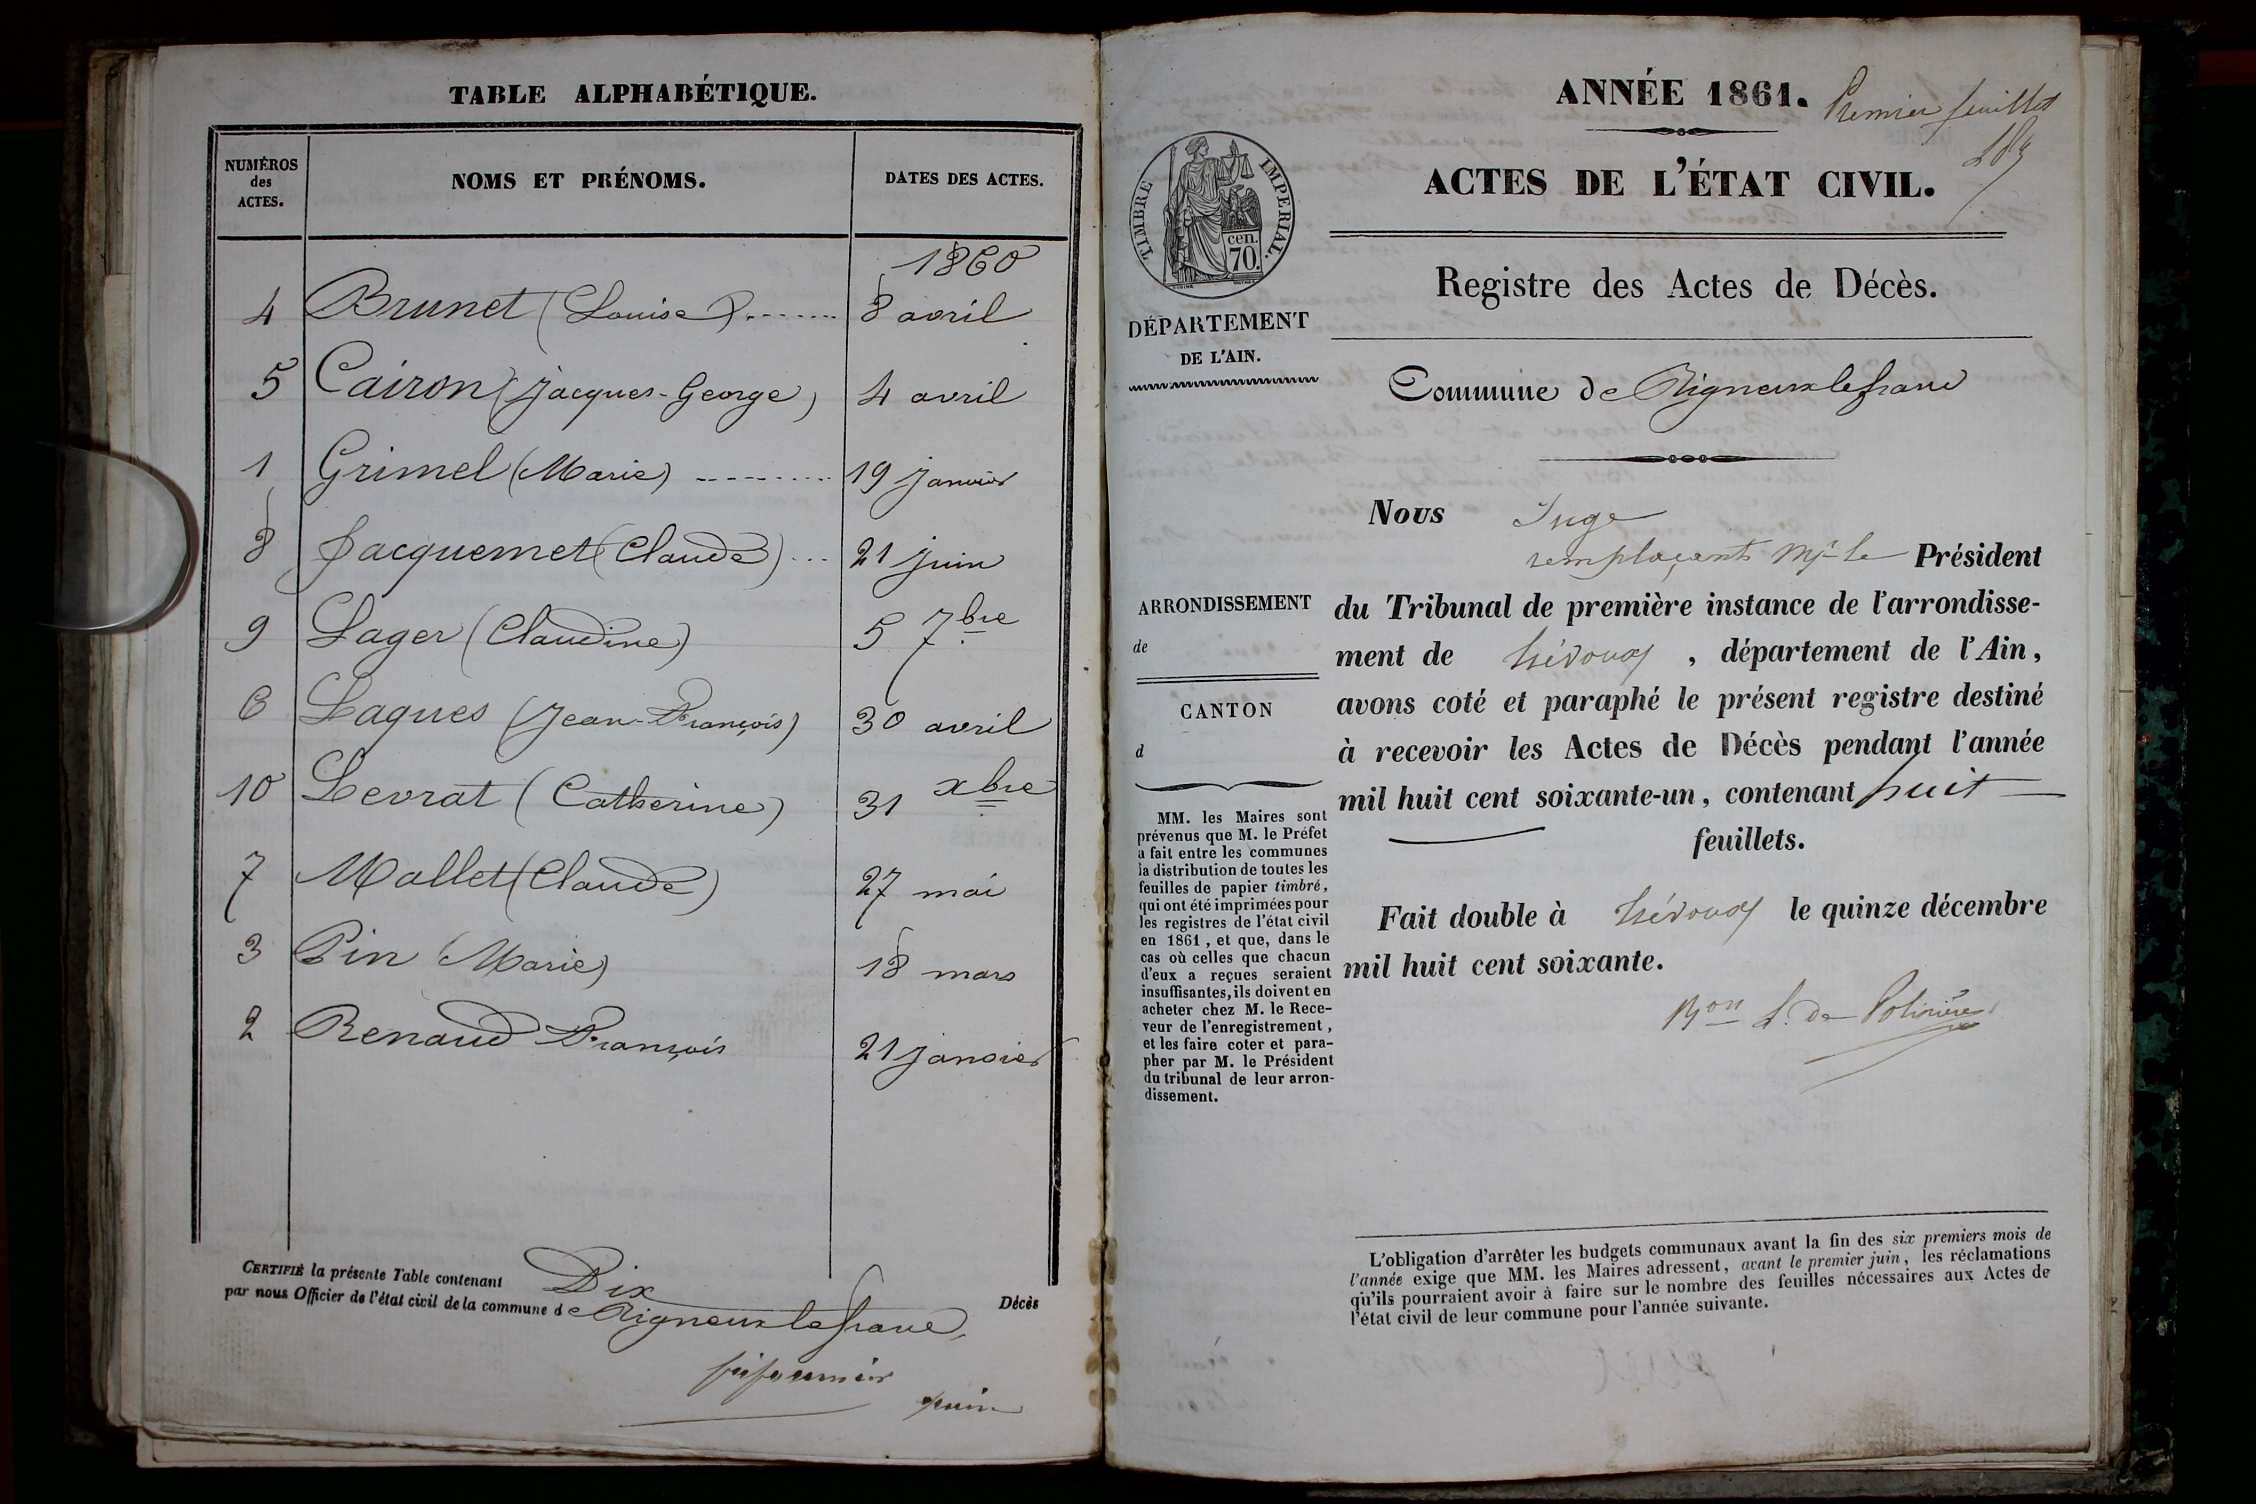 TABLE ALPHABÉTIQUE.
NUMÉROS des ACTES.
NOMS ET PRÉNOMS.
DATES DES ACTES.
1860
4 Brunet (Louise) 8 avril
5 Cairon (Jacques-George) 4 avril
1 Grimel (Marie) 19 janvier
8 Jacquemet (Claude) 21 juin
9 Lager (Claudine) 5 7bre
6 Lagues (Jean-François) 30 avril
10 Levrat (Catherine) 31 xbre
7 Mallet (Claude) 27 mai
3 Pin (Marie) 18 mars
2 Renaud François 21 janvier
CERTIFIÉ la présente Table contenant Dix Décès
par nous Officier de l'état civil de la commune de Rigneux le franc
ANNÉE 1861.
Premier feuillet
ACTES DE L'ÉTAT CIVIL.
Registre des Actes de Décès.
TIMBRE IMPERIAL.
cen.
70.
DÉPARTEMENT
DE L'AIN.
Commune de Rigneux le franc
Nous Juge
remplaçant Mr le Président
du Tribunal de première instance de l'arrondisse-
ment de Trévoux, département de l'Ain,
avons coté et paraphé le présent registre destiné
à recevoir les Actes de Décès pendant l'année
mil huit cent soixante-un, contenant huit
feuillets.
Fait double à Trévoux le quinze décembre
mil huit cent soixante.
ARRONDISSEMENT
de
CANTON
d
MM. les Maires sont
prévenus que M. le Préfet
a fait entre les communes
la distribution de toutes les
feuilles de papier timbré,
qui ont été imprimées pour
les registres de l'état civil
en 1861, et que, dans le
cas où celles que chacun
d'eux a reçues seraient
insuffisantes, ils doivent en
acheter chez M. le Rece-
veur de l'enregistrement,
et les faire coter et para-
pher par M. le Président
du tribunal de leur arron-
dissement.
L'obligation d'arrêter les budgets communaux avant la fin des six premiers mois de
l'année exige que MM. les Maires adressent, avant le premier juin, les réclamations
qu'ils pourraient avoir à faire sur le nombre des feuilles nécessaires aux Actes de
l'état civil de leur commune pour l'année suivante.